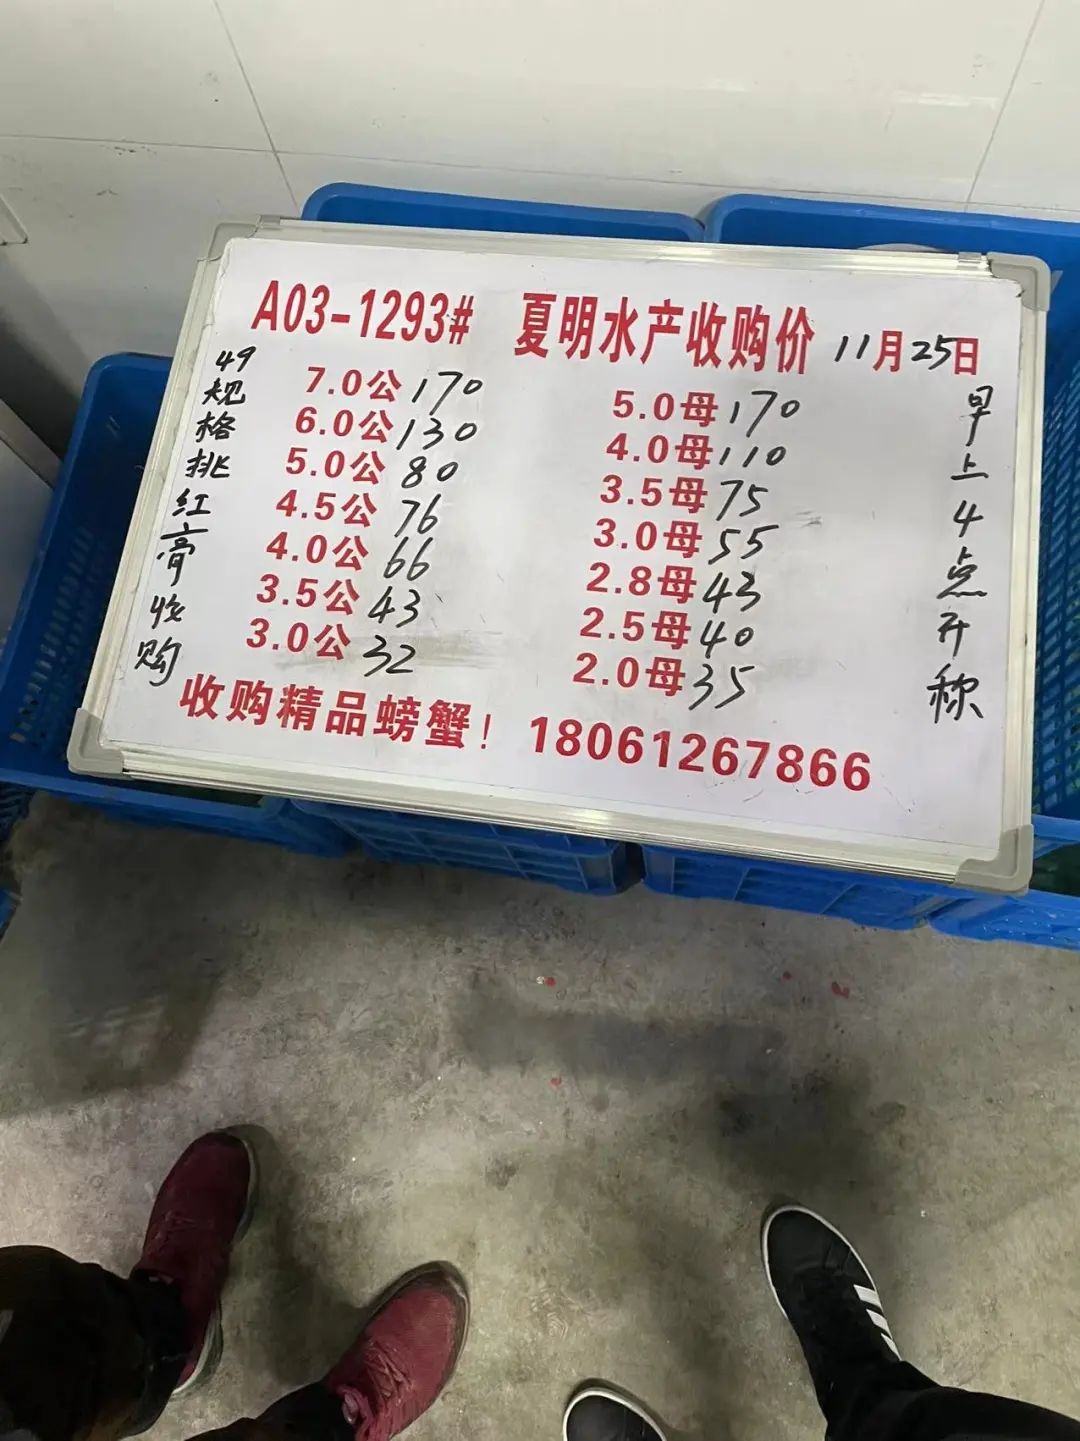 A03-1293# 夏明水产收购价 11月25日
49规格挑红膏收购
7.0公 170
6.0公 130
5.0公 80
4.5公 76
4.0公 66
3.5公 43
3.0公 32
5.0母 170
4.0母 110
3.5母 75
3.0母 55
2.8母 43
2.5母 40
2.0母 35
早上4点开称
收购精品螃蟹! 18061267866